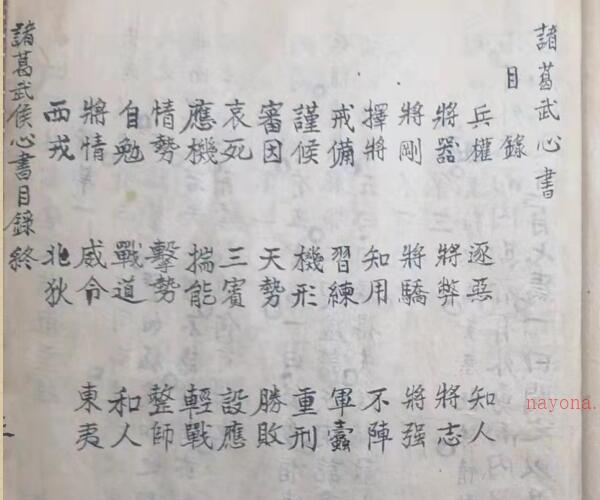 諸葛武心書
目錄
兵權 逐惡 知人
將器 將弊 將志
將剛 將驕 將强
擇將 知用 不陣
戒備 習練 軍蠹
謹候 機形 重刑
審因 天勢 勝敗
哀死 三賓 設應
應機 揣能 輕戰
情勢 擊勢 整師
自勉 戰道 和人
將情 威令 東夷
西戎 北狄
諸葛武侯心書目錄終
nayona.